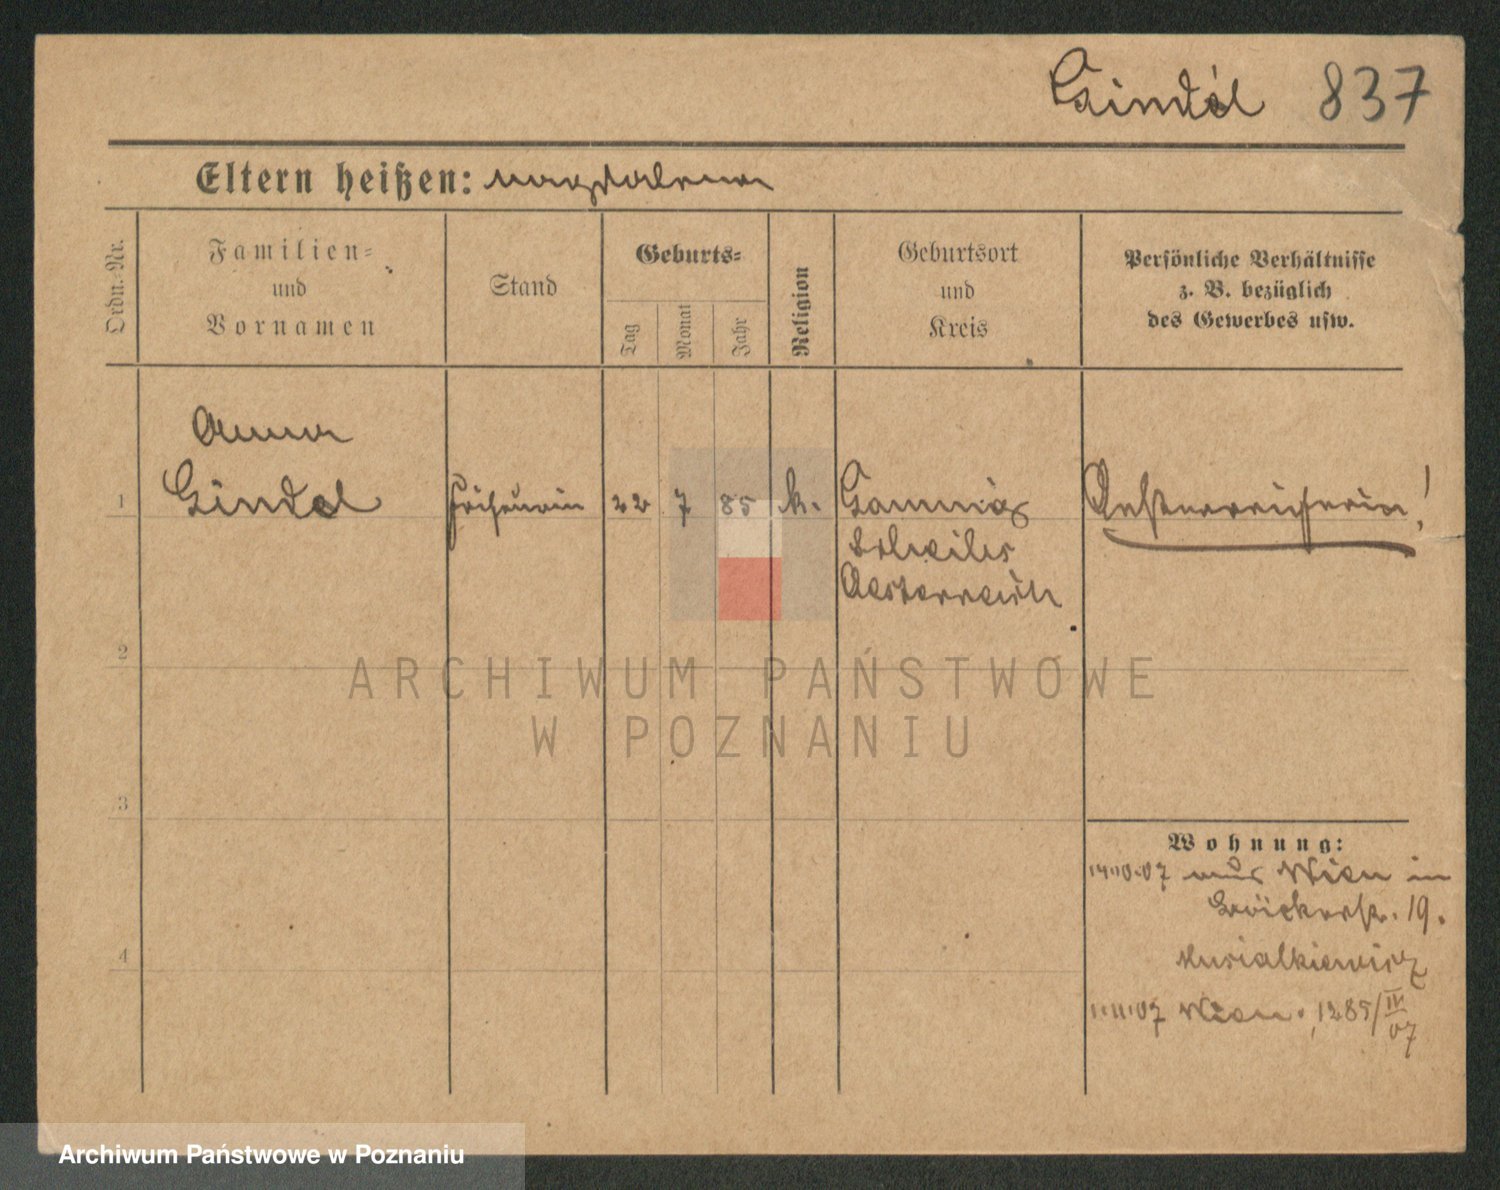 Gindél 837
Eltern heißen: Magdalena
Ordn.-Nr.
Familien-
und
Vornamen
Stand
Geburts-
Tag
Monat
Jahr
Religion
Geburtsort
und
Kreis
Persönliche Verhältnisse
z. B. bezüglich
des Gewerbes usw.
Anna
1 Gindel Friseurin 22 7 85 k. Oesterreicherin!
Oesterreich
2
ARCHIWUM PAŃSTWOWE
W POZNANIU
3
Wohnung:
14.10.07 aus Wien in
Bäckerstr. 19.
4
Musialkiewicz
1.11.07 Wien. 1285/IV
07
Archiwum Państwowe w Poznaniu